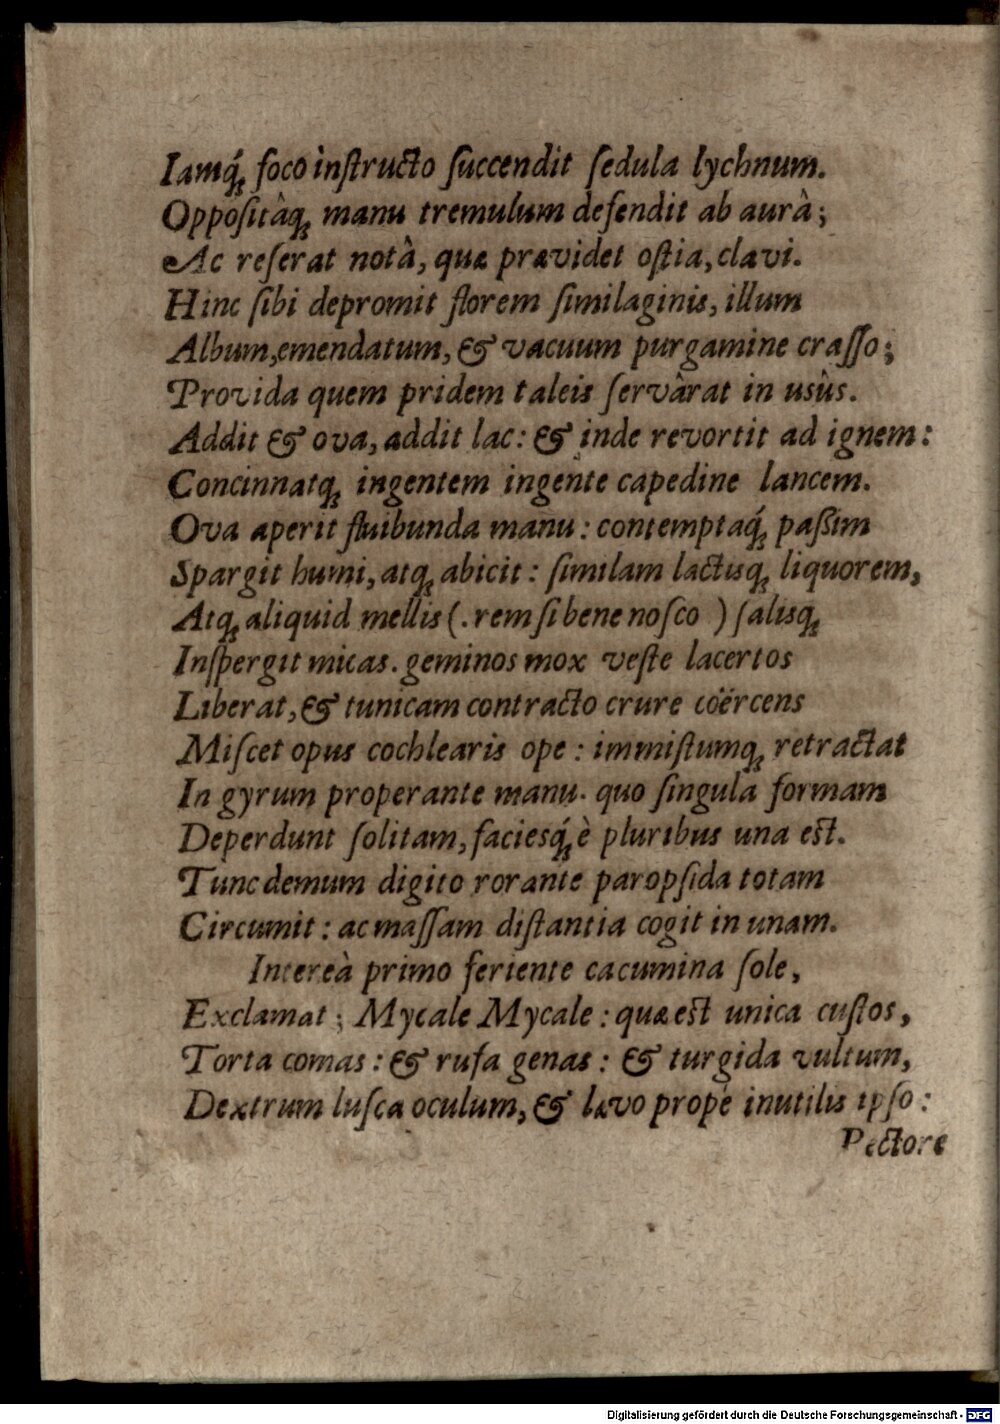 Iamq́; foco instructo succendit sedula lychnum.
Oppositâq; manu tremulum defendit ab aurâ;
Ac reserat notâ, quæ prævidet ostia, clavi.
Hinc sibi depromit florem similaginis, illum
Album, emendatum, & vacuum purgamine crasso;
Provida quem pridem taleis servârat in usûs.
Addit & ova, addit lac: & inde revortit ad ignem:
Concinnatq; ingentem ingente capedine lancem.
Ova aperit fluibunda manu: contemptaq́; paßim
Spargit humi, atq; abicit: similam lactisq; liquorem,
Atq; aliquid mellis (. rem si bene nosco ) salisq;
Inspergit micas. geminos mox veste lacertos
Liberat, & tunicam contracto crure coërcens
Miscet opus cochlearis ope: immistumq; retractat
In gyrum properante manu. quo singula formam
Deperdunt solitam, faciesq́; è pluribus una est.
Tunc demum digito rorante paropsida totam
Circumit: ac massam distantia cogit in unam.
Intereà primo feriente cacumina sole,
Exclamat; Mycale Mycale: quæ est unica custos,
Torta comas: & rufa genas: & turgida vultum,
Dextrum lusca oculum, & lævo propè inutilis ipso:
Pectore
Digitalisierung gefördert durch die Deutsche Forschungsgemeinschaft - DFG